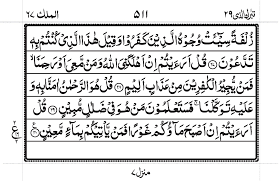 تبٰرك الذی ٢٩ ٥١١ الملك ٦٧
زُلْفَةً سِيْٓـَٔتْ وُجُوْهُ الَّذِيْنَ كَفَرُوْا وَقِيْلَ هٰذَا الَّذِيْ كُنْتُمْ بِهٖ
تَدَّعُوْنَ ٢٧ قُلْ اَرَءَيْتُمْ اِنْ اَهْلَكَنِيَ اللّٰهُ وَمَنْ مَّعِيَ اَوْ رَحِمَنَا ۙ
فَمَنْ يُّجِيْرُ الْكٰفِرِيْنَ مِنْ عَذَابٍ اَلِيْمٍ ٢٨ قُلْ هُوَ الرَّحْمٰنُ اٰمَنَّا بِهٖ وَ
عَلَيْهِ تَوَكَّلْنَا ۚ فَسَتَعْلَمُوْنَ مَنْ هُوَ فِيْ ضَلٰلٍ مُّبِيْنٍ ٢٩ قُلْ
اَرَءَيْتُمْ اِنْ اَصْبَحَ مَآؤُكُمْ غَوْرًا فَمَنْ يَّاْتِيْكُمْ بِمَآءٍ مَّعِيْنٍ ٣٠
ع
منزل ٧